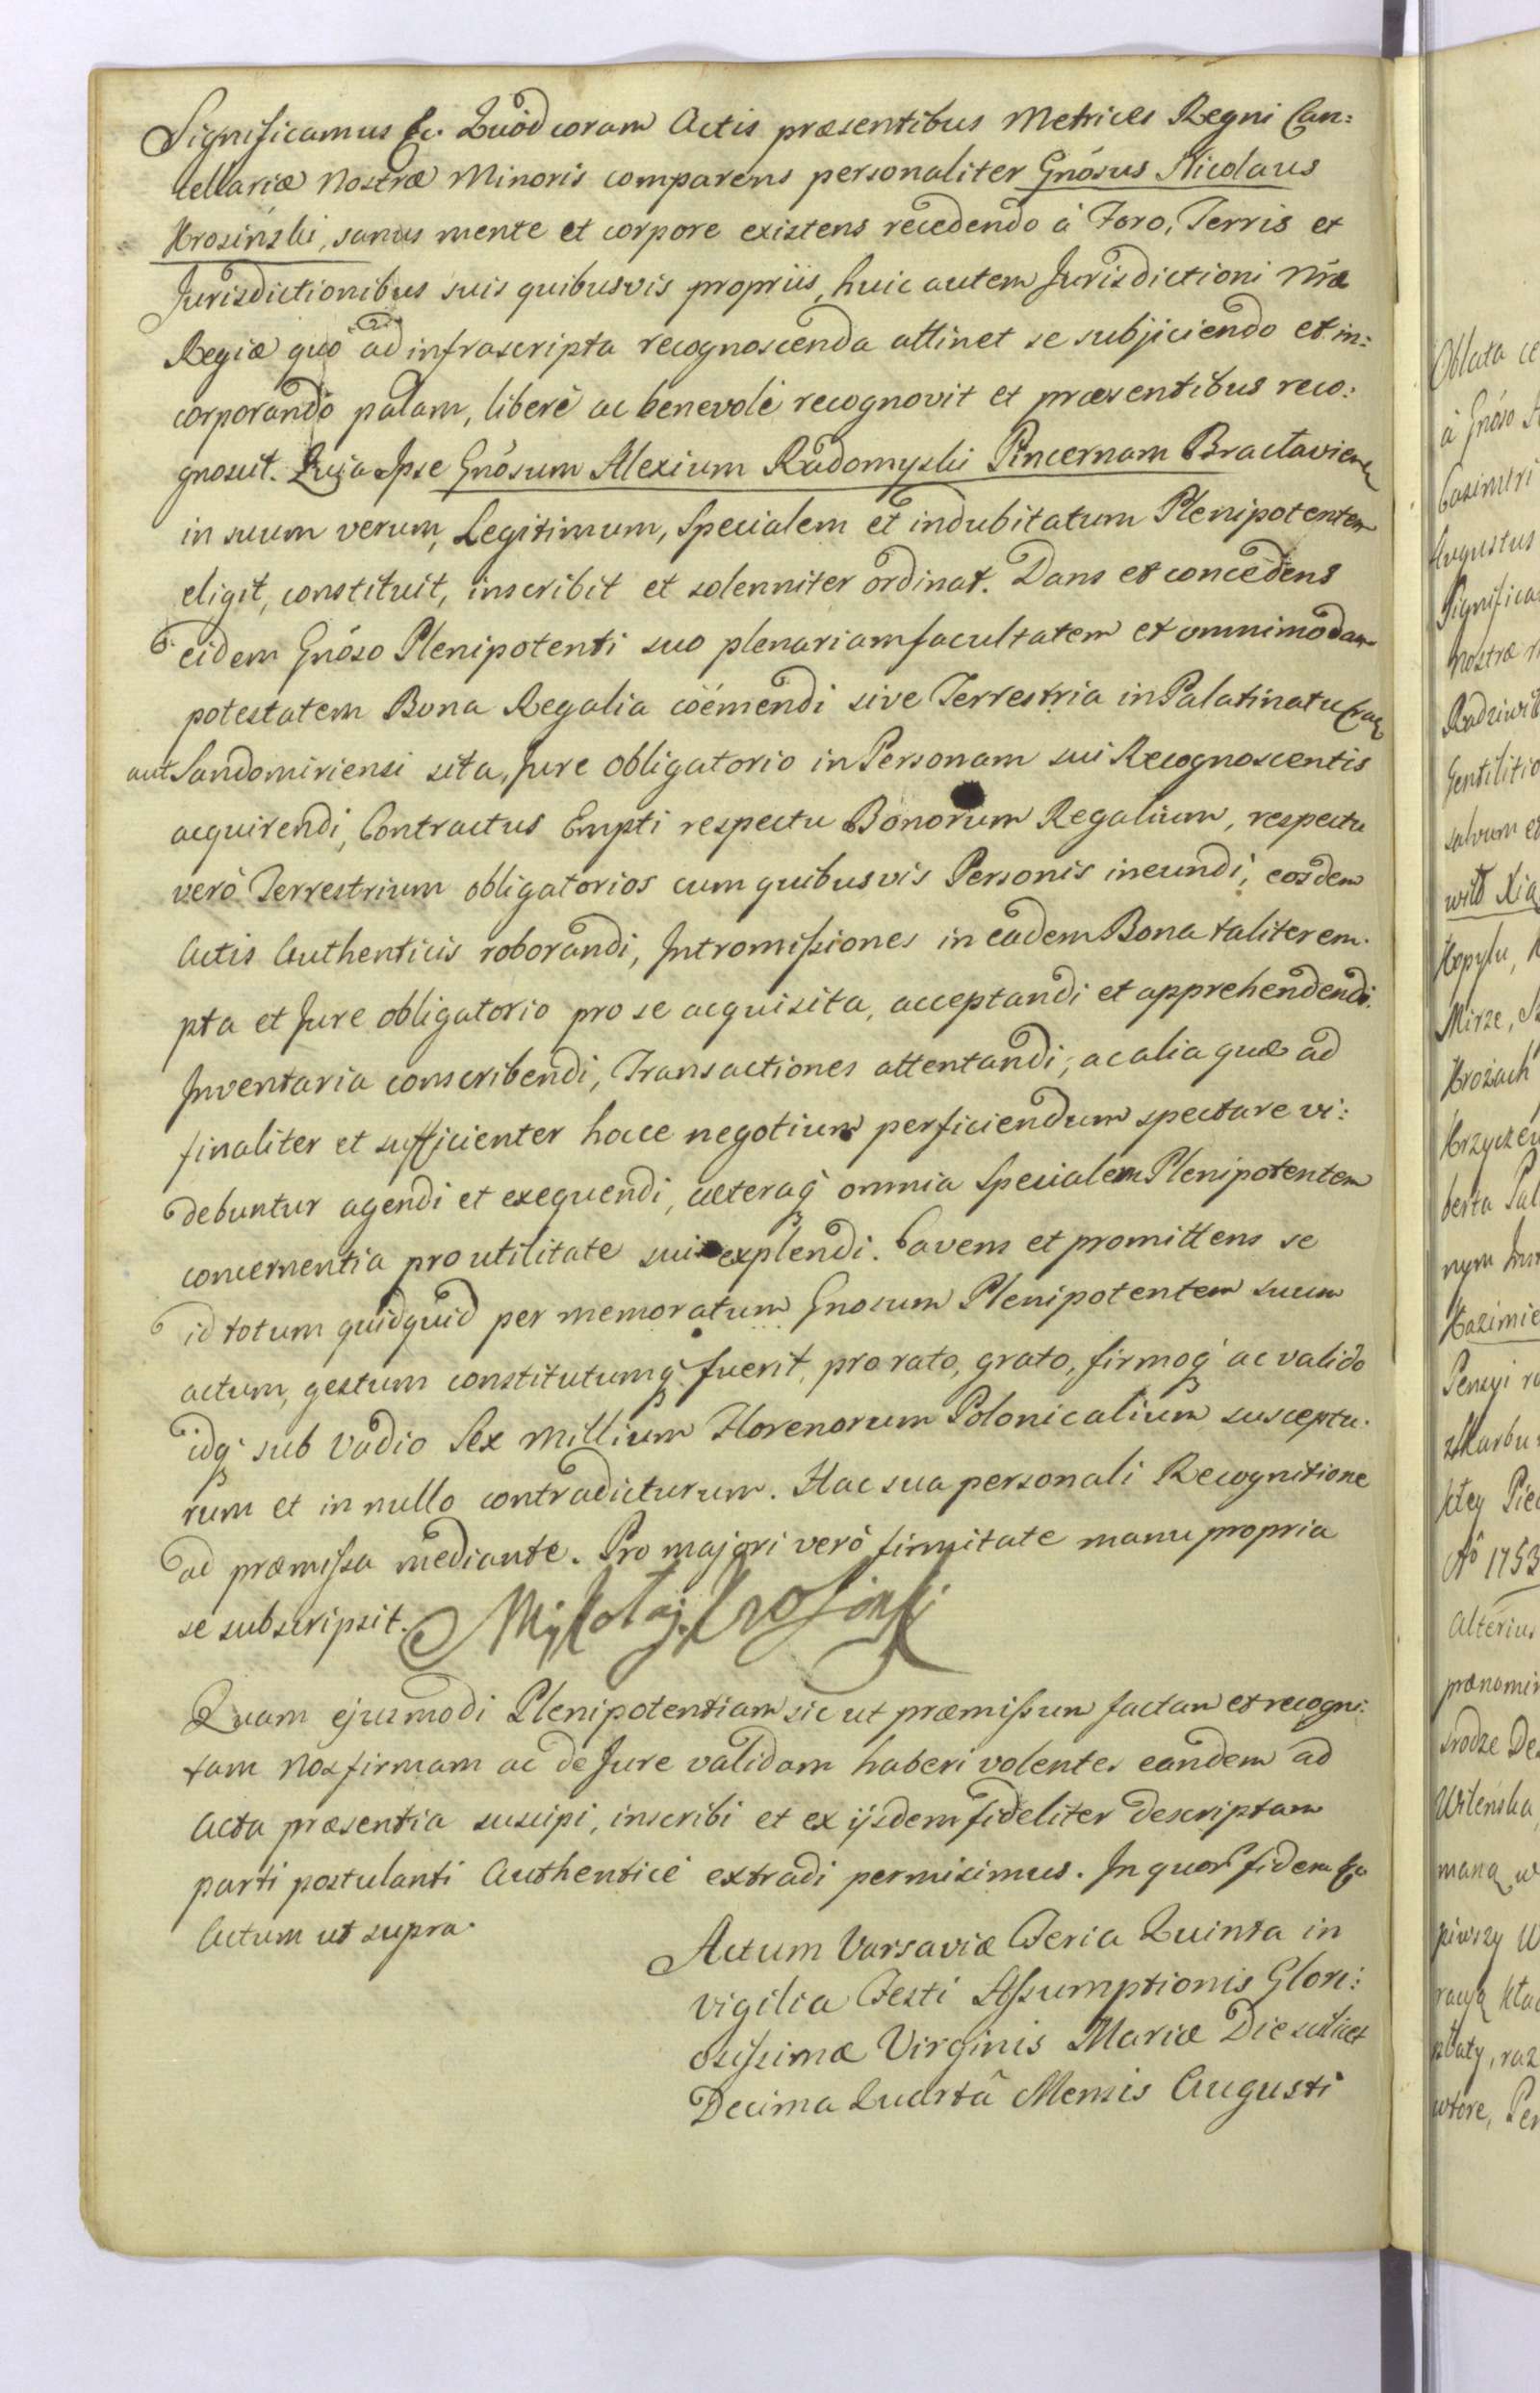 Significamus &c. Quod coram Actis præsentibus Metrices Regni Can:
cellariæ Nostræ Minoris comparens personaliter Gnosus Nicolaus
Krosinski, sanus mente et corpore existens recedendo à Foro, Terris et
Jurisdictionibus suis quibusvis propriis, huic autem Jurisdictioni Nræ
Regiæ quo ad infrascripta recognoscenda attinet se subjiciendo et in:
corporando palam, liberè ac benevolè recognovit et præsentibus reco:
gnoscit. Quia Ipse Gnosum Alexium Radomyski Pincernam Bractavien
in suum verum, Legitimum, Specialem et indubitatum Plenipotentem
eligit, constituit, inscribit et solenniter ordinat. Dans et concedens
eidem Gnoso Plenipotenti suo plenariam facultatem et omnimodam
potestatem Bona Regalia coëmendi sive Terrestria in Palatinatu Crac
aut Sandomiriensi sita, Jure obligatorio in Personam sui Recognoscentis
acquirendi, Contractus Empti respectu Bonorum Regalium, respectu
verò Terrestrium obligatorios cum quibusvis Personis ineundi, eosdem
Actis Authenticis roborandi, Intromissiones in eadem Bona taliter em:
pta et Jure obligatorio pro se acquisita, acceptandi et apprehendendi,
Inventaria conscribendi, Transactiones attentandi, ac alia quæ ad
finaliter et sufficienter hocce negotium perficiendum spectare vi:
debuntur agendi et exequendi, cæteraq omnia Specialem Plenipotentem
concernentia pro utilitate sui explendi. Cavens et promittens se
id totum quidquid per memoratum Gnosum Plenipotentem suum
actum, gestum constitutumq fuerit, pro rato, grato, firmoq ac valido
idq sub vadio Sex Millium Florenorum Polonicalium susceptu:
rum et in nullo contradicturum. Hac sua personali Recognitione
ad præmissa mediante. Pro majori verò firmitate manu propria
se subscripsit. Mikołaj Krosinski
Quam ejusmodi Plenipotentiam sic ut præmissum factam et recogni:
tam Nos firmam ac de Jure validam haberi volentes eandem ad
Acta præsentia suscipi, inscribi et ex ijsdem fideliter descriptam
parti postulanti Authenticè extradi permisimus. In quor fidem &c
Actum ut supra.
Actum Varsaviæ Feria Quinta in
vigilia Festi Assumptionis Glori:
osissimæ Virginis Mariæ Die scilicet
Decima Quartâ Mensis Augusti